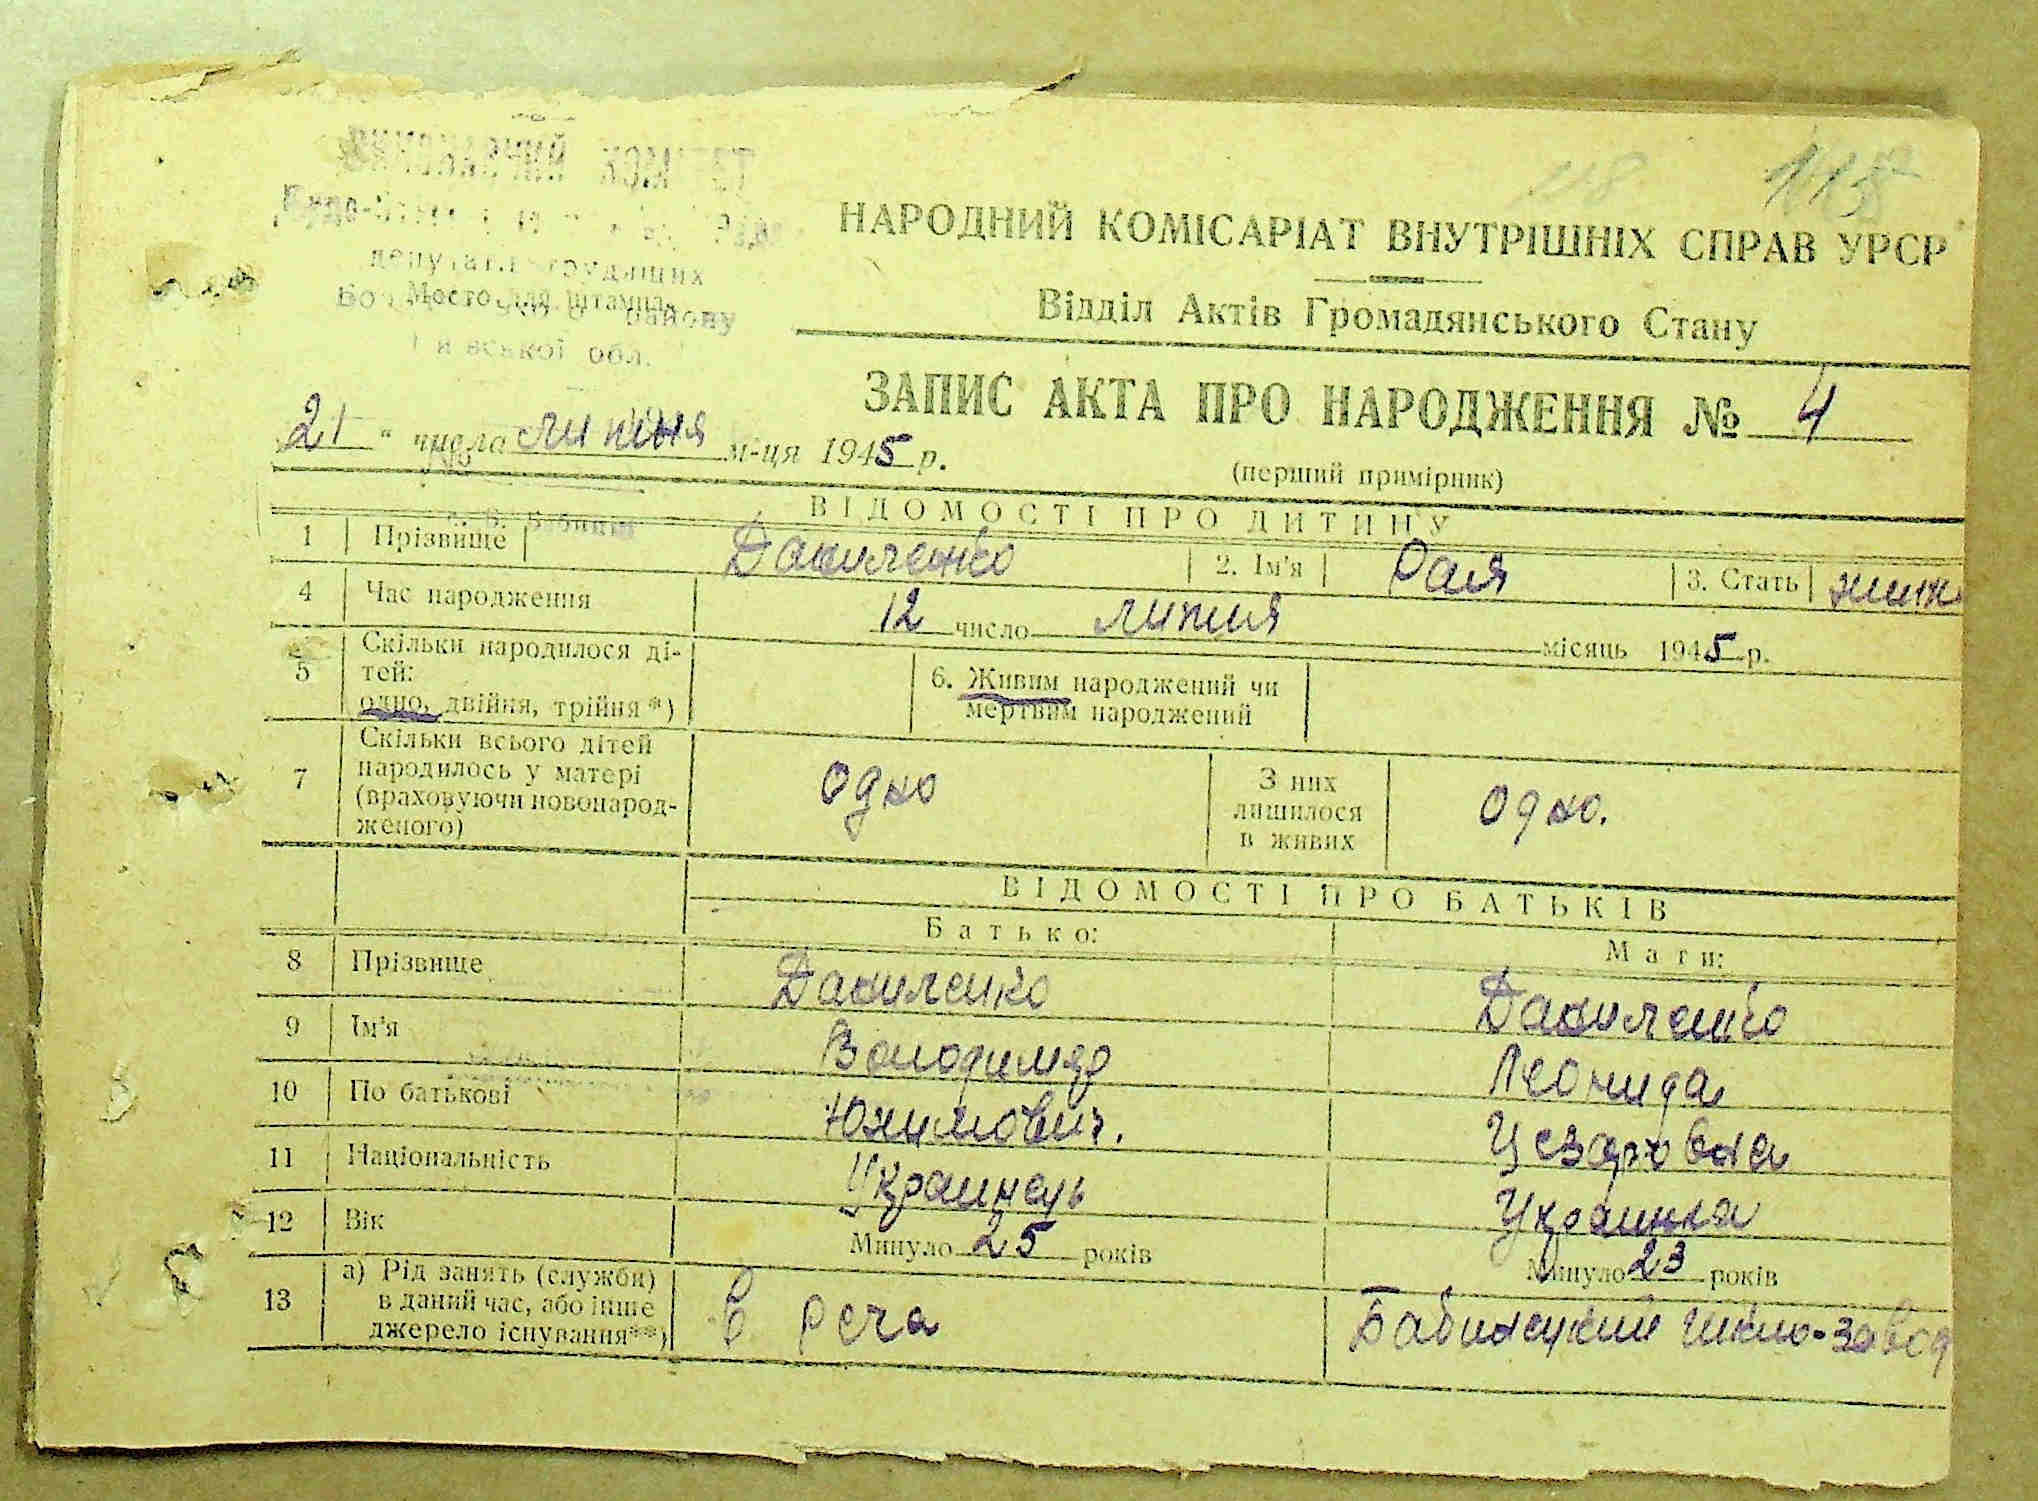 118 115
ВИКОНАВЧИЙ КОМІТЕТ
депутатів трудящих
Место для штампа
району
обл.
НАРОДНИЙ КОМІСАРІАТ ВНУТРІШНІХ СПРАВ УРСР
Відділ Актів Громадянського Стану
ЗАПИС АКТА ПРО НАРОДЖЕННЯ № 4
21 " числа липня м-ця 1945 р.
(перший примірник)
ВІДОМОСТІ ПРО ДИТИНУ
1 Прізвище Даниленко 2. Ім'я Рая 3. Стать жіноч
4 Час народження 12 число липня місяць 1945 р.
5 Скільки народилося ді-
тей:
одно, двійня, трійня*)
6. Живим народжений чи
мертвим народжений
7 Скільки всього дітей
народилось у матері
(враховуючи новонарод-
женого)
одно
З них
лишилося
в живих
одно.
ВІДОМОСТІ ПРО БАТЬКІВ
Батько: Мати:
8 Прізвище Даниленко Даниленко
9 Ім'я Володимер Леонида
10 По батькові Юхимович. Цезаровна
11 Національність Украинець Украинка
12 Вік Минуло 25 років Минуло 23 років
13 а) Рід занять (служби)
в даний час, або інше
джерело існування**)
Бабинецкий шкло-завод